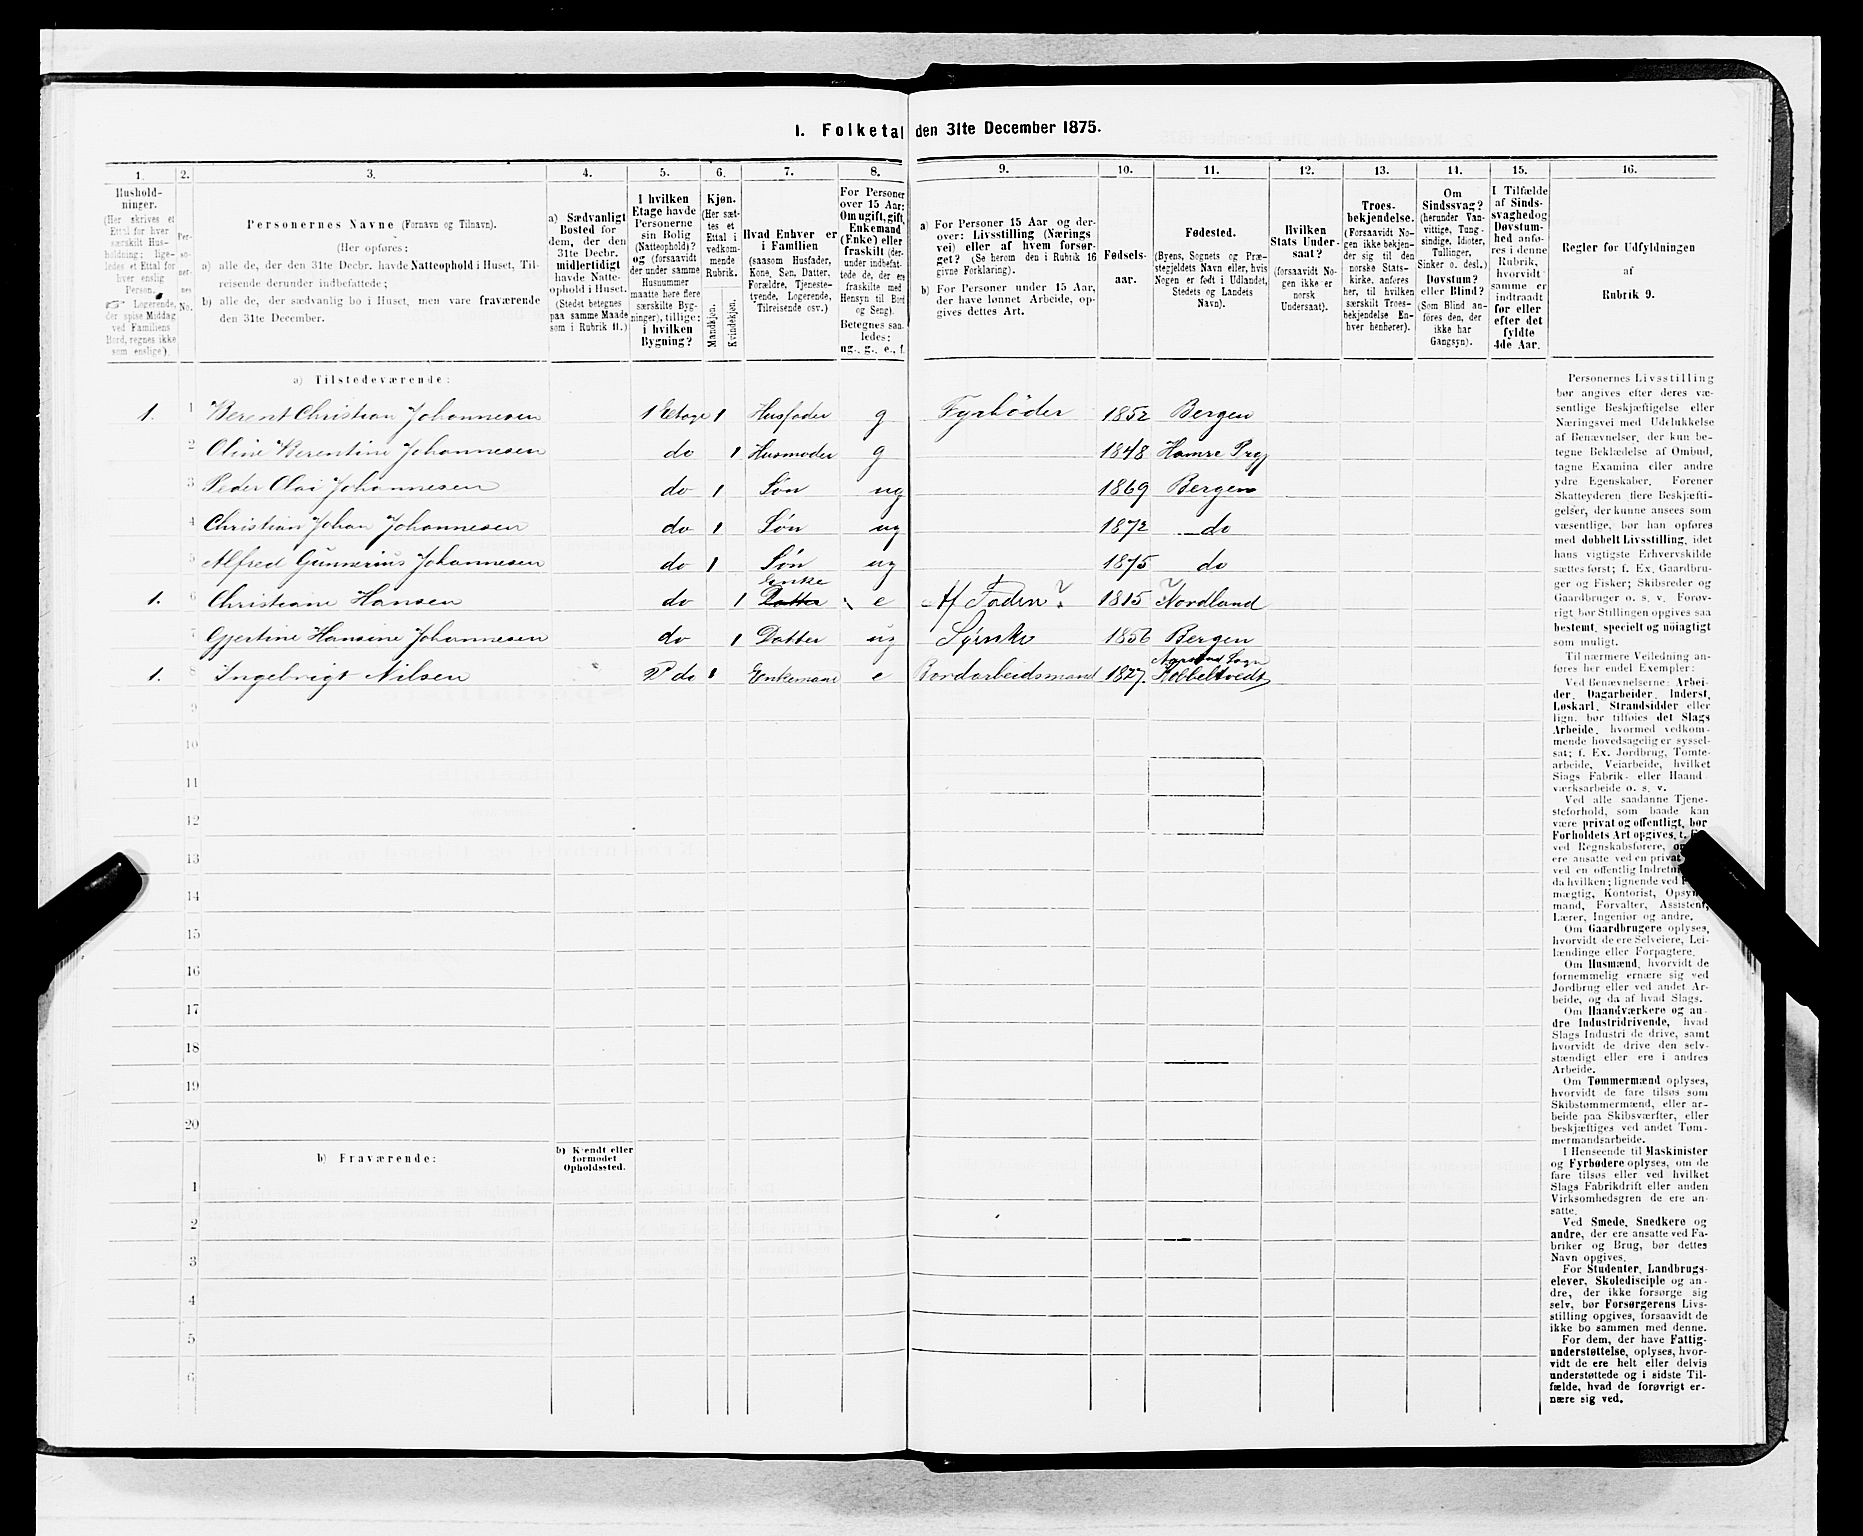 1. Folketal den 31te December 1875.
1. 2. 3. 4. 5. 6. 7. 8. 9. 10. 11. 12. 13. 14. 15. 16.
Husholdninger.
(Her skrives et
Ettal for hver
særskilt Husholdning;
ligeledes et Ettal for
hver enslig
Person.
Logerende,
der spise Middag
ved Familiens
Bord, regnes ikke
som enslige).
Personernes No.
Personernes Navne (Fornavn og Tilnavn).
(Her opføres:
a) alle de, der den 31te Decbr. havde Natteophold i Huset, Tilreisende derunder indbefattede;
b) alle de, der sædvanlig bo i Huset, men vare fraværende
den 31te December.
a) Sædvanligt
Bosted for
dem, der den
31te Decbr.
midlertidigt
havde Natteophold i Huset.
(Stedet betegnes
paa samme Maade
som i Rubrik 11.)
I hvilken
Etage havde
Personerne
sin Bolig
(Natteophold)?
og (forsaavidt
der under samme
Husnummer
maatte høre flere
særskilte Bygninger), tillige:
i hvilken
Bygning?
Kjøn.
(Her sættes et
Ettal i
vedkommende
Rubrik.
Mandkjøn.
Kvindekjøn.
Hvad Enhver er
i Familien
(saasom Husfader,
Kone, Søn, Datter,
Forældre, Tjenestetyende, Logerende,
Tilreisende osv.)
For Personer
over 15 Aar:
Om ugift, gift,
Enkemand
(Enke) eller
fraskilt (derunder indbefattede de, der ere
fraskilte med
Hensyn til Bord
og Seng).
Betegnes saaledes:
ug., g., e., f.
a) For Personer 15 Aar og derover: Livsstilling (Næringsvei) eller af hvem forsørget? (Se herom den i Rubrik 16
givne Forklaring).
b) For Personer under 15 Aar,
der have lønnet Arbeide, opgives dettes Art.
Fødselsaar.
Fødested.
(Byens, Sognets og Præstegjeldets Navn eller, hvis
Nogen er født i Udlandet,
Stedets og Landets
Navn).
Hvilken
Stats Undersaat?
(forsaavidt Nogen ikke er
norsk
Undersaat).
Troesbekjendelse.
(Forsaavidt Nogen ikke bekjender sig til den
norske Statskirke, anføres
her, til hvilken
særskilt Troesbekjendelse Enhver henhører).
Om
Sindssvag?
(herunder Vanvittige, Tungsindige, Idioter,
Tullinger,
Sinker o. desl.)
Døvstum?
eller Blind?
(Som Blind anføres den, der
ikke har
Gangsyn).
I Tilfælde
af Sindssvaghed og
Døvstumhed anføres i denne
Rubrik,
hvorvidt
samme er
indtraadt
før eller
efter det
fyldte
4de Aar.
Regler for Udfyldningen
af
Rubrik 9.
a) Tilstedeværende:
1. 1 Berent Christian Johannesen 1 Etage 1 Husfader g Fyrbøder 1852 Bergen
2 Oline Berentine Johannesen do 1 Husmoder g 1848 Hamre Prgj
3 Peder Olai Johannesen do 1 Søn ug 1869 Bergen
4 Christian Johan Johannesen do 1 Søn ug 1872 do
5 Alfred Gunnerius Johannesen do 1 Søn ug 1875 do
Enke
1. 6 Christiane Hansen do 1 Datter e Af 1815 Nordland
7 Gjertine Hansine Johannesen do 1 Datter ug 1856 Bergen
Sogn
1. 8 Ingebrigt Nilsen do 1 Enkemand e Bordarbeidsmand 1827.
9
10
11
12
13
14
15
16
17
18
19
20
b) Fraværende:
b) Kjendt eller
formodet
Opholdssted.
1
2
3
4
5
6
Personernes Livsstilling
bør angives efter deres væsentlige Beskjæftigelse eller
Næringsvei med Udelukkelse
af Benævnelser, der kun betegne Beklædelse af Ombud,
tagne Examina eller andre
ydre Egenskaber. Forener
Skatteyderen flere Beskjæftigelser, der kunne ansees som
væsentlige, bør han opføres
med dobbelt Livsstilling, idet
hans vigtigste Erhvervskilde
sættes først; f. Ex. Gaardbruger og Fisker; Skibsreder og
Gaardbruger o. s. v. Forøvrigt bør Stillingen opgives saa
bestemt, specielt og nøiagtigt
som muligt.
Til nærmere Veiledning anføres her endel Exempler:
Ved Benævnelserne: Arbeider, Dagarbeider, Inderst,
Løskarl, Strandsidder eller
lign. bør tilføies det Slags
Arbeide, hvormed vedkommende hovedsagelig er sysselsat; f. Ex. Jordbrug, Tomtearbeide, Veiarbeide, hvilket
Slags Fabrik- eller Haandværksarbeide o. s. v.
Ved alle saadanne Tjenesteforhold, som baade kan
være privat og offentligt, bør
Forholdets Art opgives, t.
ved Regnskabsførere,
ere ansatte ved en privat
ved en offentlig
da hvilken; lignende ved
mægtig, Kontorist,
mand, Forvalter, Assistent,
Lærer, Ingeniør og andre.
Om Gaardbrugere oplyses,
hvorvidt de ere Selveiere, Leilændinge eller Forpagtere.
Om Husmænd, hvorvidt de
fornemmelig ernære sig ved
Jordbrug eller ved andet Arbeide, og da af hvad Slags.
Om Haandværkere og andre Industridrivende, hvad
Slags Industri de drive, samt
hvorvidt de drive den selvstændigt eller ere i andres
Arbeide.
Om Tømmermænd oplyses,
hvorvidt de fare tilsøs som
Skibstømmermænd, eller arbeide paa Skibsværfter, eller
beskjæftiges ved andet Tømmermandsarbeide.
I Henseende til Maskinister
og Fyrbødere oplyses, om de
fare tilsøs eller ved hvilket
Slags Fabrikdrift eller anden
Virksomhedsgren de ere ansatte.
Ved Smede, Snedkere og
andre, der ere ansatte ved Fabriker og Brug, bør dettes
Navn opgives.
For Studenter, Landbrugselever, Skoledisciple og andre, der ikke forsørge sig
selv, bør Forsørgerens Livsstilling opgives, forsaavidt de
ikke bo sammen med denne.
For dem, der have Fattigunderstøttelse, oplyses, hvorvidt de ere helt eller delvis
understøttede og i sidste Tilfælde, hvad de forøvrigt ernære sig ved.